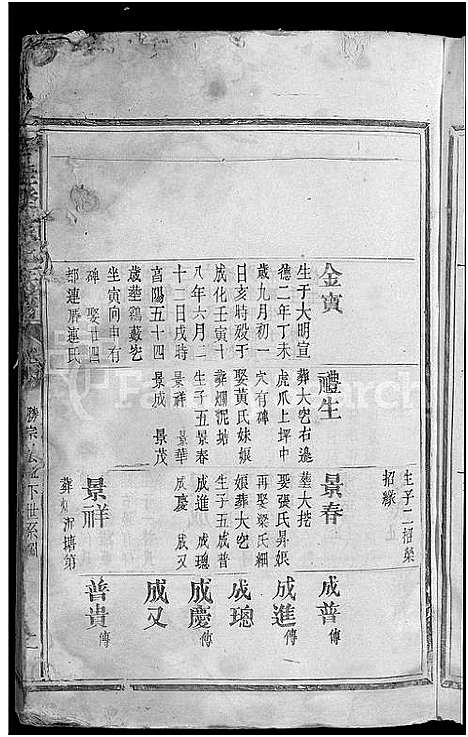 生子二招榮
招緣
金寅
生于大明宣
德二年丁未
歲九月初一
日亥時殁于
成化壬寅十
八年六月二
十二日戌時
享陽五十四
歲塟鷄藪岃
坐寅向申有
碑 娶廿四
都連厝連氏
禮生
葬大岃右邉
虎爪上坪中
穴有碑
娶黃氏妹娘
葬爛泥塘
生子五景春
景祥 景華
景成 景茂
景春
塟大㙓
娶張氏昇娘
再娶梁氏細
娘葬大岃
生子五成普
成進 成璁
成慶 成又
景祥
葬爛泥塘第
成普傳
成進傳
成璁
成慶傳
成又
普貴傳
下世系圖